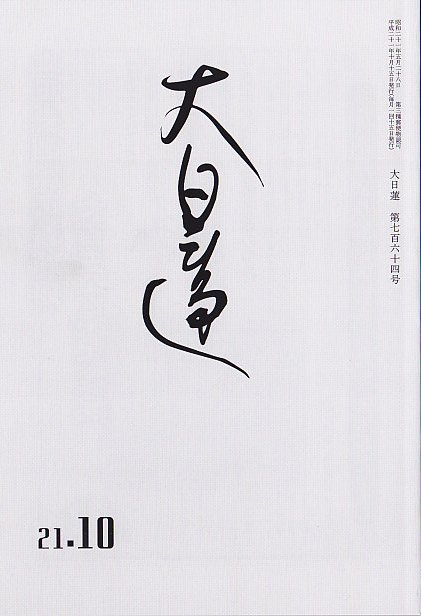 昭和二十一年五月二十八日　第三種郵便物認可
平成二十一年十月十五日発行(毎月一回十五日発行)
大日蓮　第七百六十四号
大日蓮
21.10